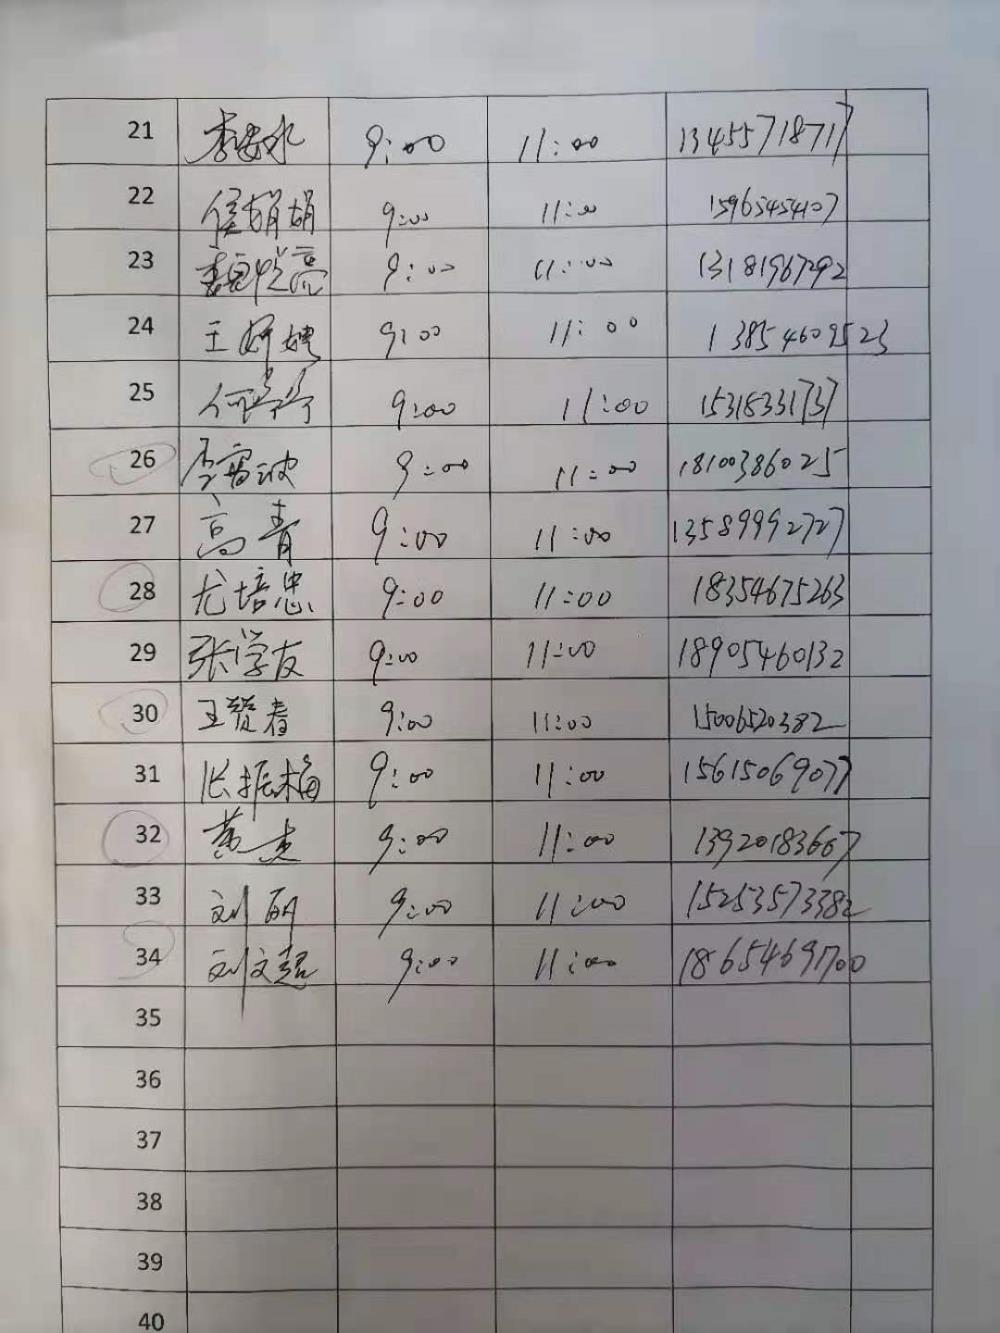 21 李安水 9:00 11:00 13455718717
22 侯娟娟 9:00 11:00 15965454107
23 魏悦亮 9:00 11:00 13181967292
24 王婷婷 9:00 11:00 13854609523
25 何宁宁 9:00 11:00 15318331737
26 李雷波 9:00 11:00 18100386025
27 高青 9:00 11:00 13589992727
28 尤培忠 9:00 11:00 18354675263
29 张学友 9:00 11:00 18905460132
30 王赞春 9:00 11:00 15006520382
31 张振梅 9:00 11:00 15615069077
32 黄 9:00 11:00 13920183667
33 刘丽 9:00 11:00 15253573382
34 刘文超 9:00 11:00 18654691700
35
36
37
38
39
40